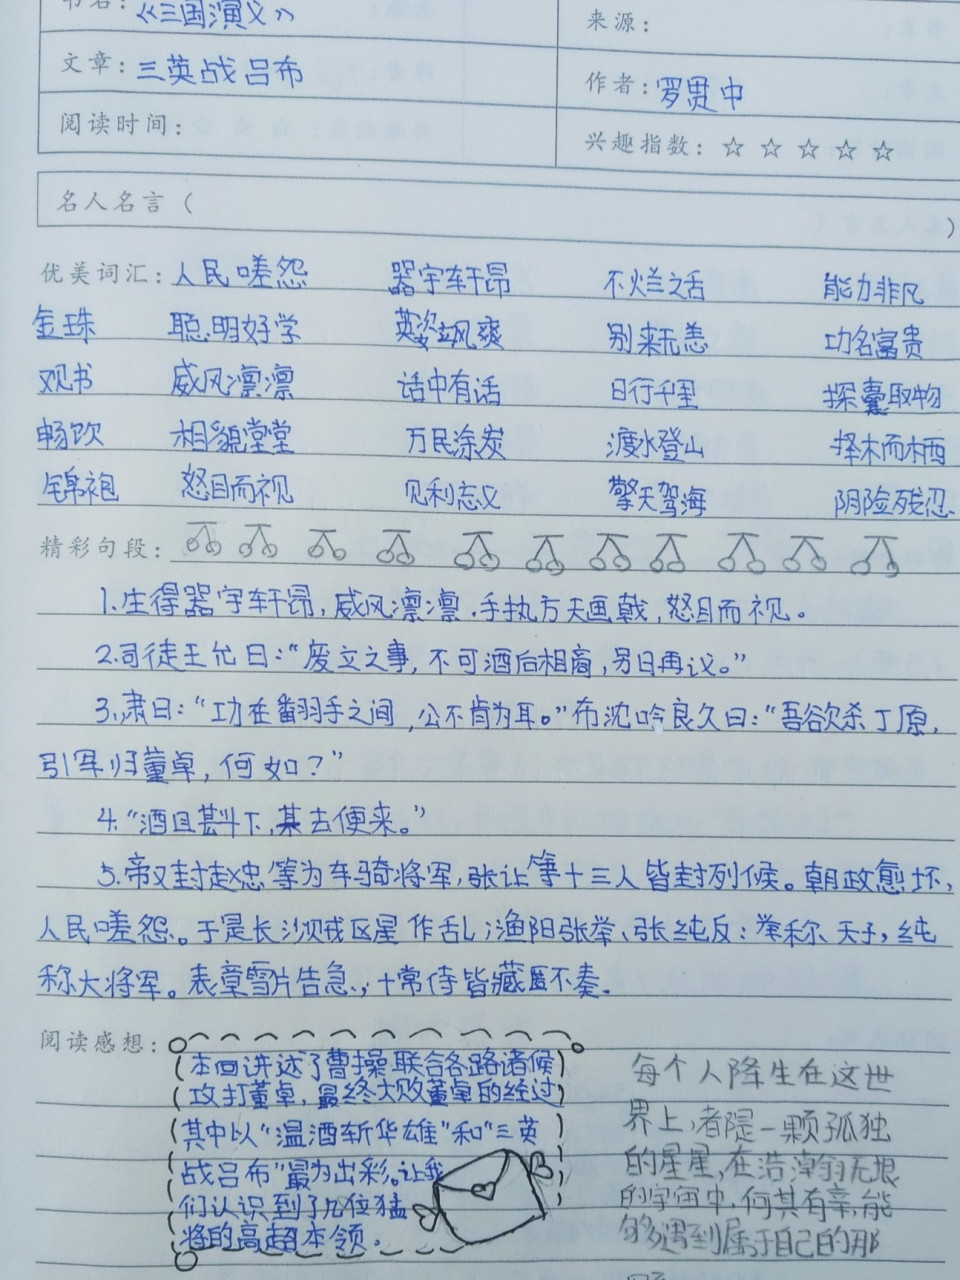 书名：《三国演义》
来源：
文章：三英战吕布
作者：罗贯中
阅读时间：
兴趣指数：☆ ☆ ☆ ☆ ☆
名人名言（ ）
优美词汇：人民嗟怨 器宇轩昂 不烂之舌 能力非凡
金珠 聪明好学 英姿飒爽 别来无恙 功名富贵
观书 威风凛凛 话中有话 日行千里 探囊取物
畅饮 相貌堂堂 万民涂炭 渡水登山 择木而栖
锦袍 怒目而视 见利忘义 擎天驾海 阴险残忍
精彩句段：
1.生得器宇轩昂，威风凛凛.手执方天画戟，怒目而视。
2.司徒王允曰：“废立之事，不可酒后相商，另日再议。”
3.肃曰：“功在翻羽手之间，公不肯为耳。”布沈吟良久曰：“吾欲杀丁原，
引军归董卓，何如？”
4.“酒且斟下，某去便来。”
5.帝又封赵忠等为车骑将军，张让等十三人皆封列候。朝政愈坏，
人民嗟怨。于是长沙贼区星作乱；渔阳张举、张纯反：举称天子，纯
称大将军。表章雪片告急，十常侍皆藏匿不奏.
阅读感想：
本回讲述了曹操联合各路诸候
攻打董卓，最终大败董卓的经过
其中以“温酒斩华雄”和“三英
战吕布”最为出彩。让我
们认识到了几位猛
将的高超本领.
每个人降生在这世
界上，都是一颗孤独
的星星，在浩瀚无垠
的宇宙中，何其有幸，能
够遇到属于自己的那